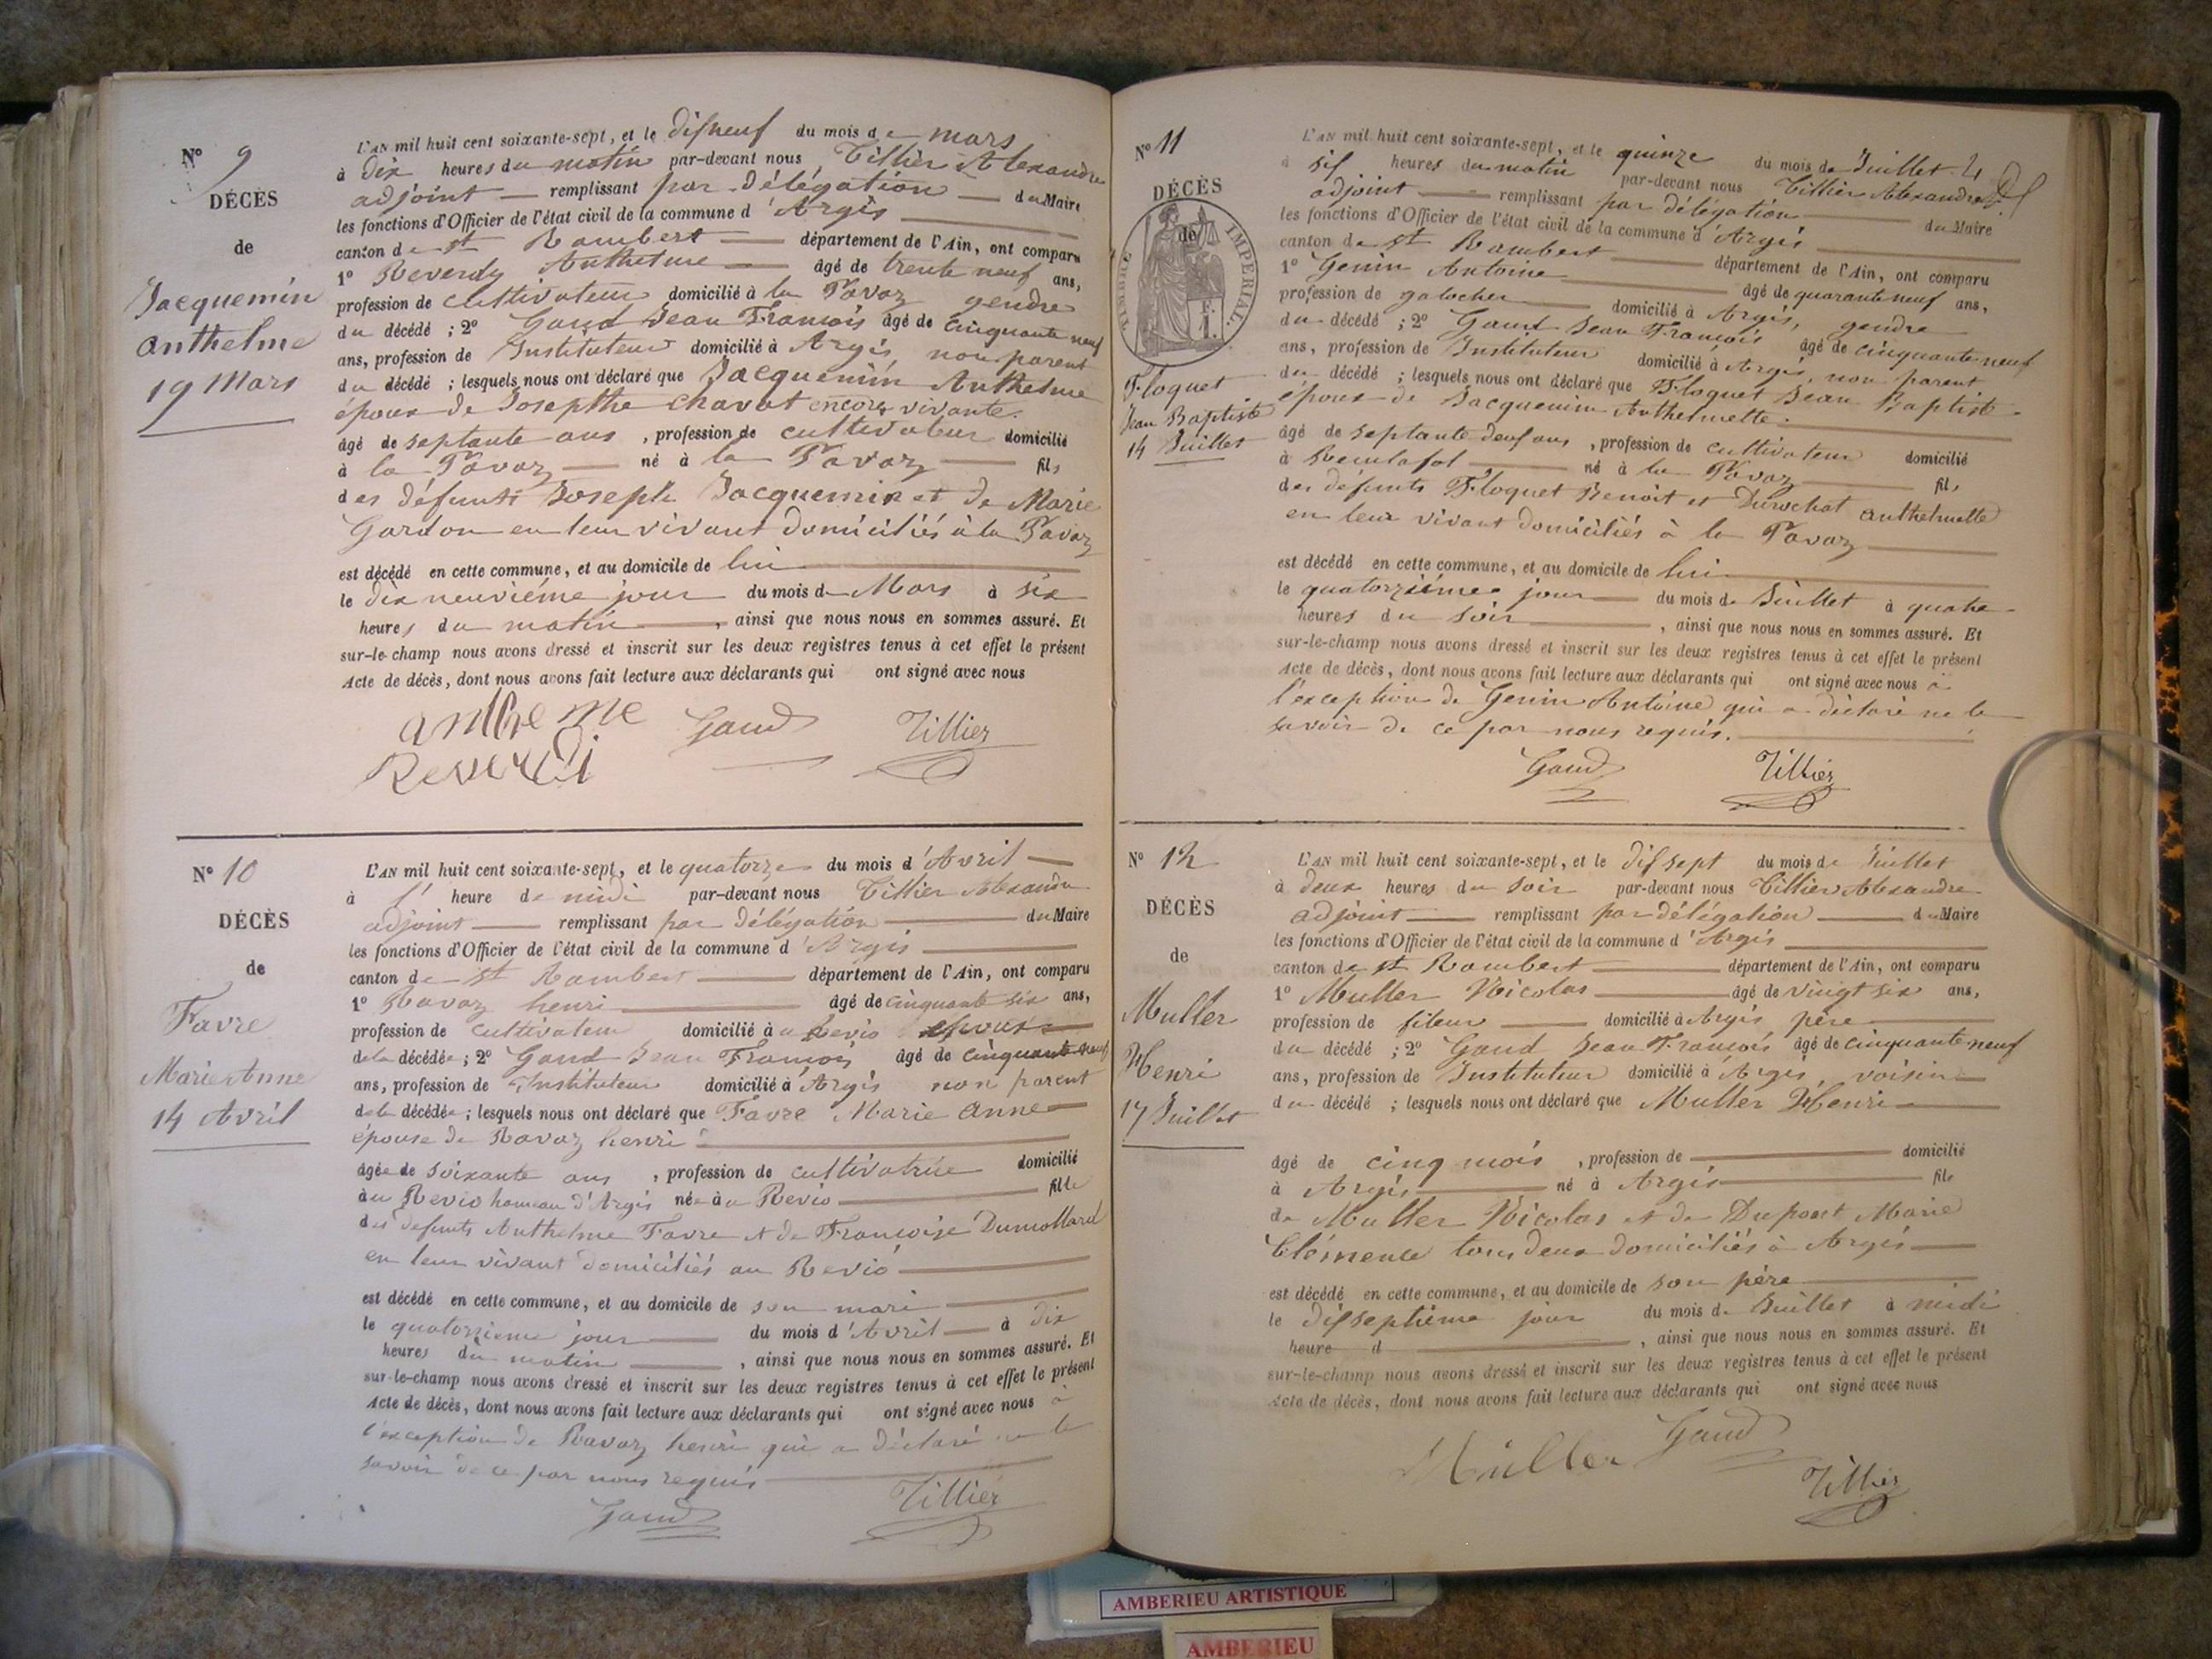 N° 9
DÉCÈS
de
Jacquemin
Anthelme
19 Mars
L'AN mil huit cent soixante-sept, et le disneuf du mois de mars
à dix heures du matin par-devant nous Tillier Alexandre
adjoint remplissant par délégation du Maire
les fonctions d'Officier de l'état civil de la commune d'Argis
canton de St Rambert département de l'Ain, ont comparu
1° Reverdy Anthelme âgé de trente neuf ans,
profession de cultivateur domicilié à la Pavaz gendre
du décédé ; 2° Gaud Jean François âgé de cinquante neuf
ans, profession de Instituteur domicilié à Argis non parent
du décédé ; lesquels nous ont déclaré que Jacquemin Anthelme
époux de Josepthe Chavat encore vivante.
âgé de septante ans, profession de cultivateur domicilié
à la Pavaz né à la Pavaz fils
des défunts Joseph Jacquemin et de Marie
Gardon en leur vivant domiciliés à la Pavaz
est décédé en cette commune, et au domicile de lui
le dix neuvième jour du mois de Mars à six
heures du matin, ainsi que nous nous en sommes assuré. Et
sur-le-champ nous avons dressé et inscrit sur les deux registres tenus à cet effet le présent
Acte de décès, dont nous avons fait lecture aux déclarants qui ont signé avec nous
Gaud Tillier
N° 10
DÉCÈS
de
Favre
Marie Anne
14 Avril
L'AN mil huit cent soixante-sept, et le quatorze du mois d'Avril
à 1' heure de midi par-devant nous Tillier Alexandre
adjoint remplissant par délégation du Maire
les fonctions d'Officier de l'état civil de la commune d'Argis
canton de St Rambert département de l'Ain, ont comparu
1° Ravaz henri âgé de cinquante six ans,
profession de cultivateur domicilié à u Revio époux
de la décédée ; 2° Gaud Jean François âgé de cinquante neuf
ans, profession de Instituteur domicilié à Argis non parent
de la décédée ; lesquels nous ont déclaré que Favre Marie Anne
épouse de Ravaz henri
âgée de soixante ans, profession de cultivatrice domicilié
à u Revio hameau d'Argis née à u Revio fille
des défunts Anthelme Favre et de Françoise Dumollard
en leur vivant domiciliés au Revio
est décédé en cette commune, et au domicile de son mari
le quatorzieme jour du mois d'Avril à dix
heures du matin, ainsi que nous nous en sommes assuré. Et
sur-le-champ nous avons dressé et inscrit sur les deux registres tenus à cet effet le présent
Acte de décès, dont nous avons fait lecture aux déclarants qui ont signé avec nous à
l'exception de Ravaz henri qui a déclaré ne le
savoir de ce par nous requis
Gaud Tillier
N° 11
DÉCÈS
de
TIMBRE IMPERIAL.
Floquet
Jean Baptiste
14 Juillet
L'AN mil huit cent soixante-sept, et le quinze du mois de Juillet
à six heures du matin par-devant nous Tillier Alexandre
adjoint remplissant par délégation du Maire
les fonctions d'Officier de l'état civil de la commune d'Argis
canton de St Rambert département de l'Ain, ont comparu
1° Genin Antoine âgé de quarante neuf ans,
profession de galocher domicilié à Argis, gendre
du décédé ; 2° Gaud Jean François âgé de cinquante neuf
ans, profession de Instituteur domicilié à Argis, non parent
du décédé ; lesquels nous ont déclaré que Floquet Jean Baptiste
époux de Jacquemin Anthelmette.
âgé de septante deux ans, profession de cultivateur domicilié
à né à la Pavaz fils
des défunts Floquet Benoit et Durochat anthelmette
en leur vivant domiciliés à la Pavaz
est décédé en cette commune, et au domicile de lui
le quatorzième jour du mois de Juillet à quatre
heures du soir, ainsi que nous nous en sommes assuré. Et
sur-le-champ nous avons dressé et inscrit sur les deux registres tenus à cet effet le présent
Acte de décès, dont nous avons fait lecture aux déclarants qui ont signé avec nous à
l'exception de Genin Antoine qui a déclaré ne le
savoir de ce par nous requis.
Gaud Tillier
N° 12
DÉCÈS
de
Muller
Henri
17 Juillet
L'AN mil huit cent soixante-sept, et le dissept du mois de Juillet
à deux heures du soir par-devant nous Tillier Alexandre
adjoint remplissant par délégation du Maire
les fonctions d'Officier de l'état civil de la commune d'Argis
canton de St Rambert département de l'Ain, ont comparu
1° Muller Nicolas âgé de vingt six ans,
profession de fileur domicilié à Argis père
du décédé ; 2° Gaud Jean François âgé de cinquante neuf
ans, profession de Instituteur domicilié à Argis, voisin
du décédé ; lesquels nous ont déclaré que Muller Henri
âgé de cinq mois, profession de domicilié
à Argis né à Argis fils
de Muller Nicolas et de Dupont Marie
Clémence tous deux domiciliés à Argis
est décédé en cette commune, et au domicile de son père
le disseptième jour du mois de Juillet à midi
heure d, ainsi que nous nous en sommes assuré. Et
sur-le-champ nous avons dressé et inscrit sur les deux registres tenus à cet effet le présent
Acte de décès, dont nous avons fait lecture aux déclarants qui ont signé avec nous
Müller Gaud
Tillier
AMBERIEU ARTISTIQUE
AMBERIEU